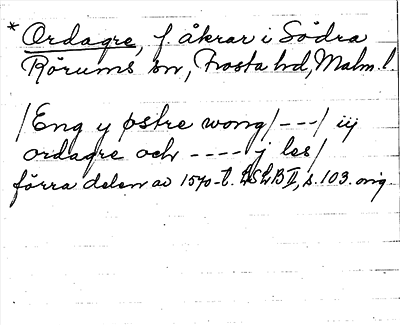 * Ordagre, f. åkrar i Södra
Rörums sn, Frosta hd, Malm. l.
/Eng y østre wong/ - - - / iij
ordagre och - - - - j les/
förra delen av 1570-t. LSLB II, s. 103. orig.